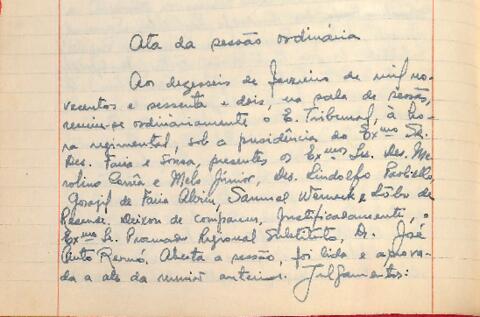 Ata da sessão ordinária
Aos dezesseis de fevereiro de mil no-
vecentos e sessenta e dois, na sala de sessão,
reuniu-se ordinàriamente o E. Tribunal, à ho-
ra regimental, sob a presidência do Exmo Sr.
Des. Faria e Sousa, presentes os Exmos Srs. Des. Me-
rolino Corrêa e Melo Júnior, Drs. Lindolfo Paoliello,
de Faria Alvim, Samuel Werneck e Lôbo de
Resende. Deixou de comparecer, justificadamente, o
Exmo Sr. Procurador Regional Substituto, Dr. José
Pinto Renno. Aberta a sessão, foi lida e aprova-
da a ata da reunião anterior. Julgamentos: